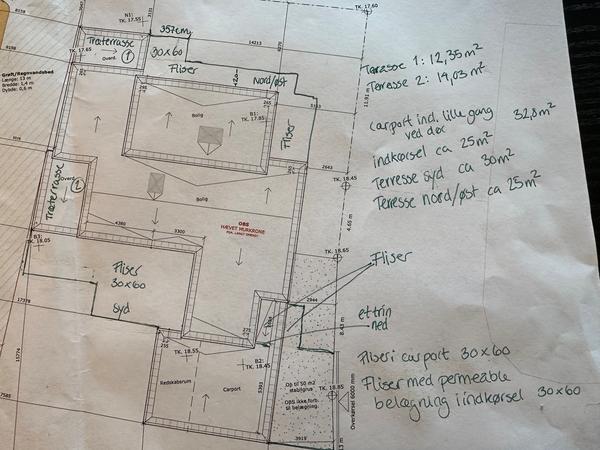 N1:
TK. 17.55
TK. 17.60
357cm
TK. 17.65
Træterrasse
1
Overd.
30x60
Fliser
14213
Nord/øst
Grøft/Regnvandsbed
Længde: 13 m
Bredde: 1,4 m
Dybde: 0,6 m
265
265
Bolig
B1:
TK. 17.85
Fliser
Træterrasse
Overd.
2
Bolig
2643
TK. 18.45
4.65 m
OBS
HÆVET MURKRONE
4380
3300
B3:
TK. 18.05
Fliser
30x60
Syd
TK. 18.65
17378
2944
8.43 m
275
TK. 18.55
B2:
TK. 18.45
Redskabsrum
Carport
5393
Op til 50 m2
stabilgrus
OBS ikke forb.
til belægning.
TK. 18.85
Overkørsel 6000 mm
3919
15774
7585
Terasse 1: 12,35 m²
Terrasse 2: 14,03 m²
carport incl. lille gang 32,8 m²
ved dør
indkørsel ca 25 m²
Terresse syd ca 30 m²
Teresse nord/øst ca 25 m²
Fliser
et trin
ned
Fliser i carport 30x60
Fliser med permeable
belægning i indkørsel 30x60